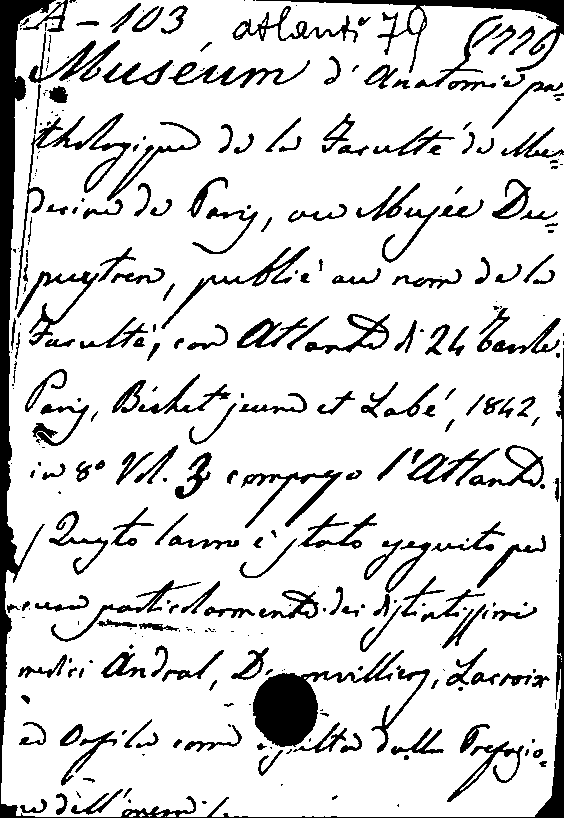 A-103 atlanti 79 (1776)
Muséum d'Anatomie pa=
thologique de la Faculté de Me=
decine de Paris, ou Musée Du=
puytren, publié au nom de la
Faculté, con Atlante di 24 Tavole.
Paris, Béchet jeune et Labé, 1842,
in 8° Vol. 3 compreso l'Atlante.
Questo lavoro è stato eseguito per
cura particolarmente dei distintissimi
medici Andral, Lacroix
ed Orfila come risulta dalla Prefazio=
ne dell'opera